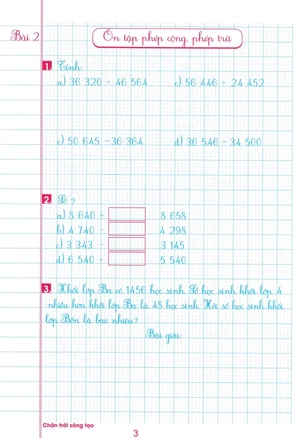 Bài 2
Ôn tập phép cộng, phép trừ
1 Tính:
a) 36 320 + 46 564 c) 56 446 + 24 452
c) 50 645 - 36 364 d) 36 546 - 34 500
2 Số ?
a) 8 640 + 8 658
b) 4 740 - 4 298
c) 3 343 - 3 145
d) 6 540 - 5 540
3 Khối lớp Ba có 1456 học sinh. Số học sinh khối lớp 4
nhiều hơn khối lớp Ba là 48 học sinh. Hỏi số học sinh khối
lớp Bốn là bao nhiêu?
Bài giải:
Chân trời sáng tạo
3